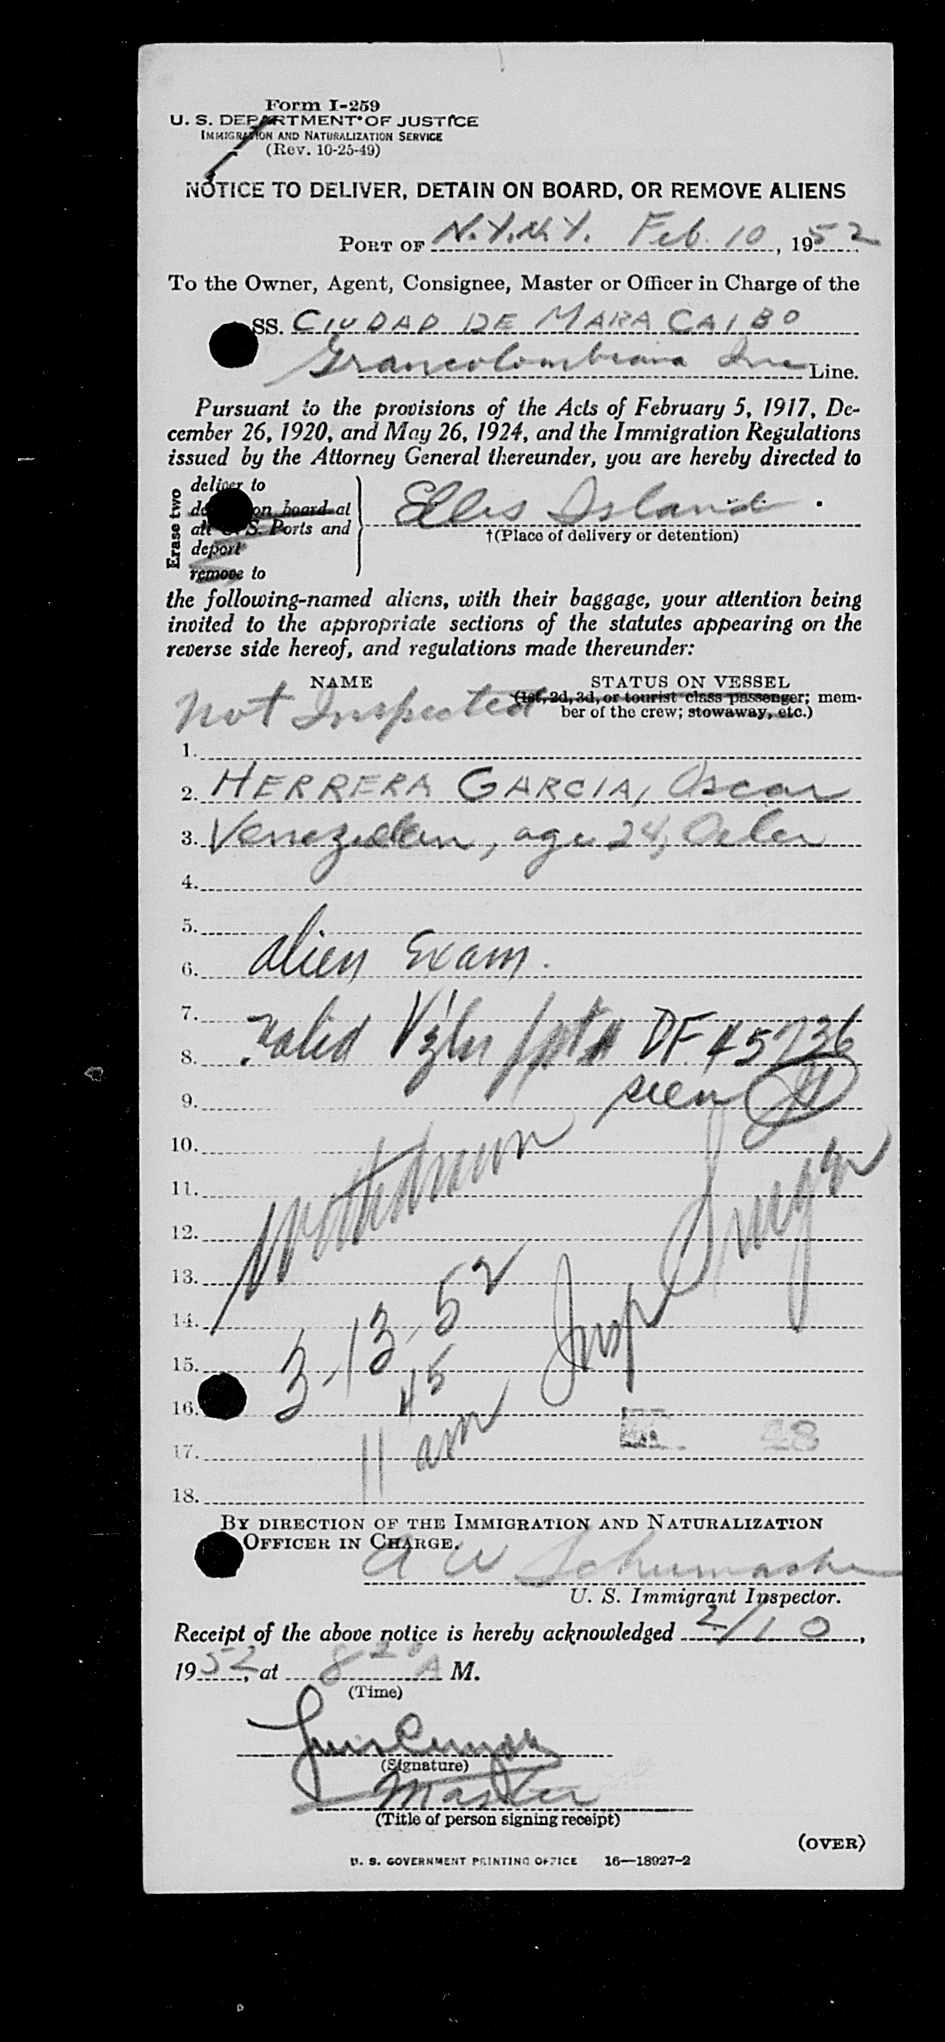 Form I-259
U. S. DEPARTMENT OF JUSTICE
IMMIGRATION AND NATURALIZATION SERVICE
(Rev. 10-25-49)
NOTICE TO DELIVER, DETAIN ON BOARD, OR REMOVE ALIENS
PORT OF N.Y. N.Y. Feb. 10, 1952
To the Owner, Agent, Consignee, Master or Officer in Charge of the
SS. CIUDAD DE MARACAIBO
Grancolombiana Inc Line.
Pursuant to the provisions of the Acts of February 5, 1917, De-
cember 26, 1920, and May 26, 1924, and the Immigration Regulations
issued by the Attorney General thereunder, you are hereby directed to
Erase two
deliver to
on board at
all U. S. Ports and
deport
remove to
Ellis Island.
†(Place of delivery or detention)
the following-named aliens, with their baggage, your attention being
invited to the appropriate sections of the statutes appearing on the
reverse side hereof, and regulations made thereunder:
NAME STATUS ON VESSEL
Not Inspected (1st, 2d, 3d, or tourist class passenger; mem-
ber of the crew; stowaway, etc.)
1.
2. HERRERA GARCIA, Oscar
3. Venezuelan, age 24, Oiler
4.
5.
6. alien Exam.
7.
8. valid DF 45736
9. seen
10.
11. withdrawn
12.
13.
14. 3-13-52 Insp
15.
16. 45
17. 11 am 48
18.
BY DIRECTION OF THE IMMIGRATION AND NATURALIZATION
OFFICER IN CHARGE.
A W Schumacher
U. S. Immigrant Inspector.
Receipt of the above notice is hereby acknowledged 2/10,
1952, at 8 20 A M.
(Time)
(Signature)
Master
(Title of person signing receipt)
(OVER)
U. S. GOVERNMENT PRINTING OFFICE 16—18927-2